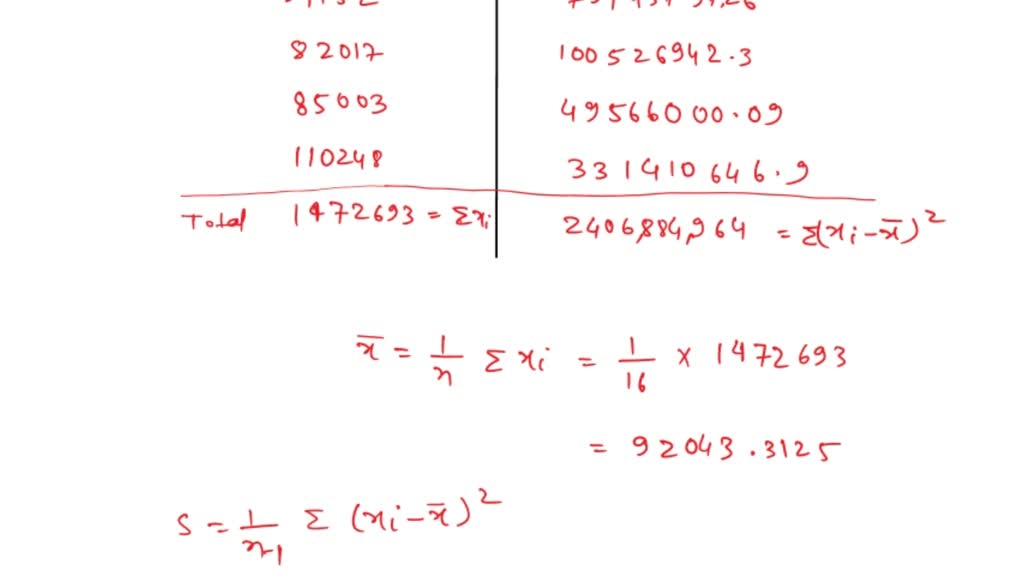 82017 100526942.3
85003 49566000.09
110248 331410646.9
Total 1472693 = Σxi 2406,884,964 = Σ(xi-x̄)²
x̄ = 1/n Σ xi = 1/16 × 1472693
= 92043.3125
S = 1/n-1 Σ (xi-x̄)²